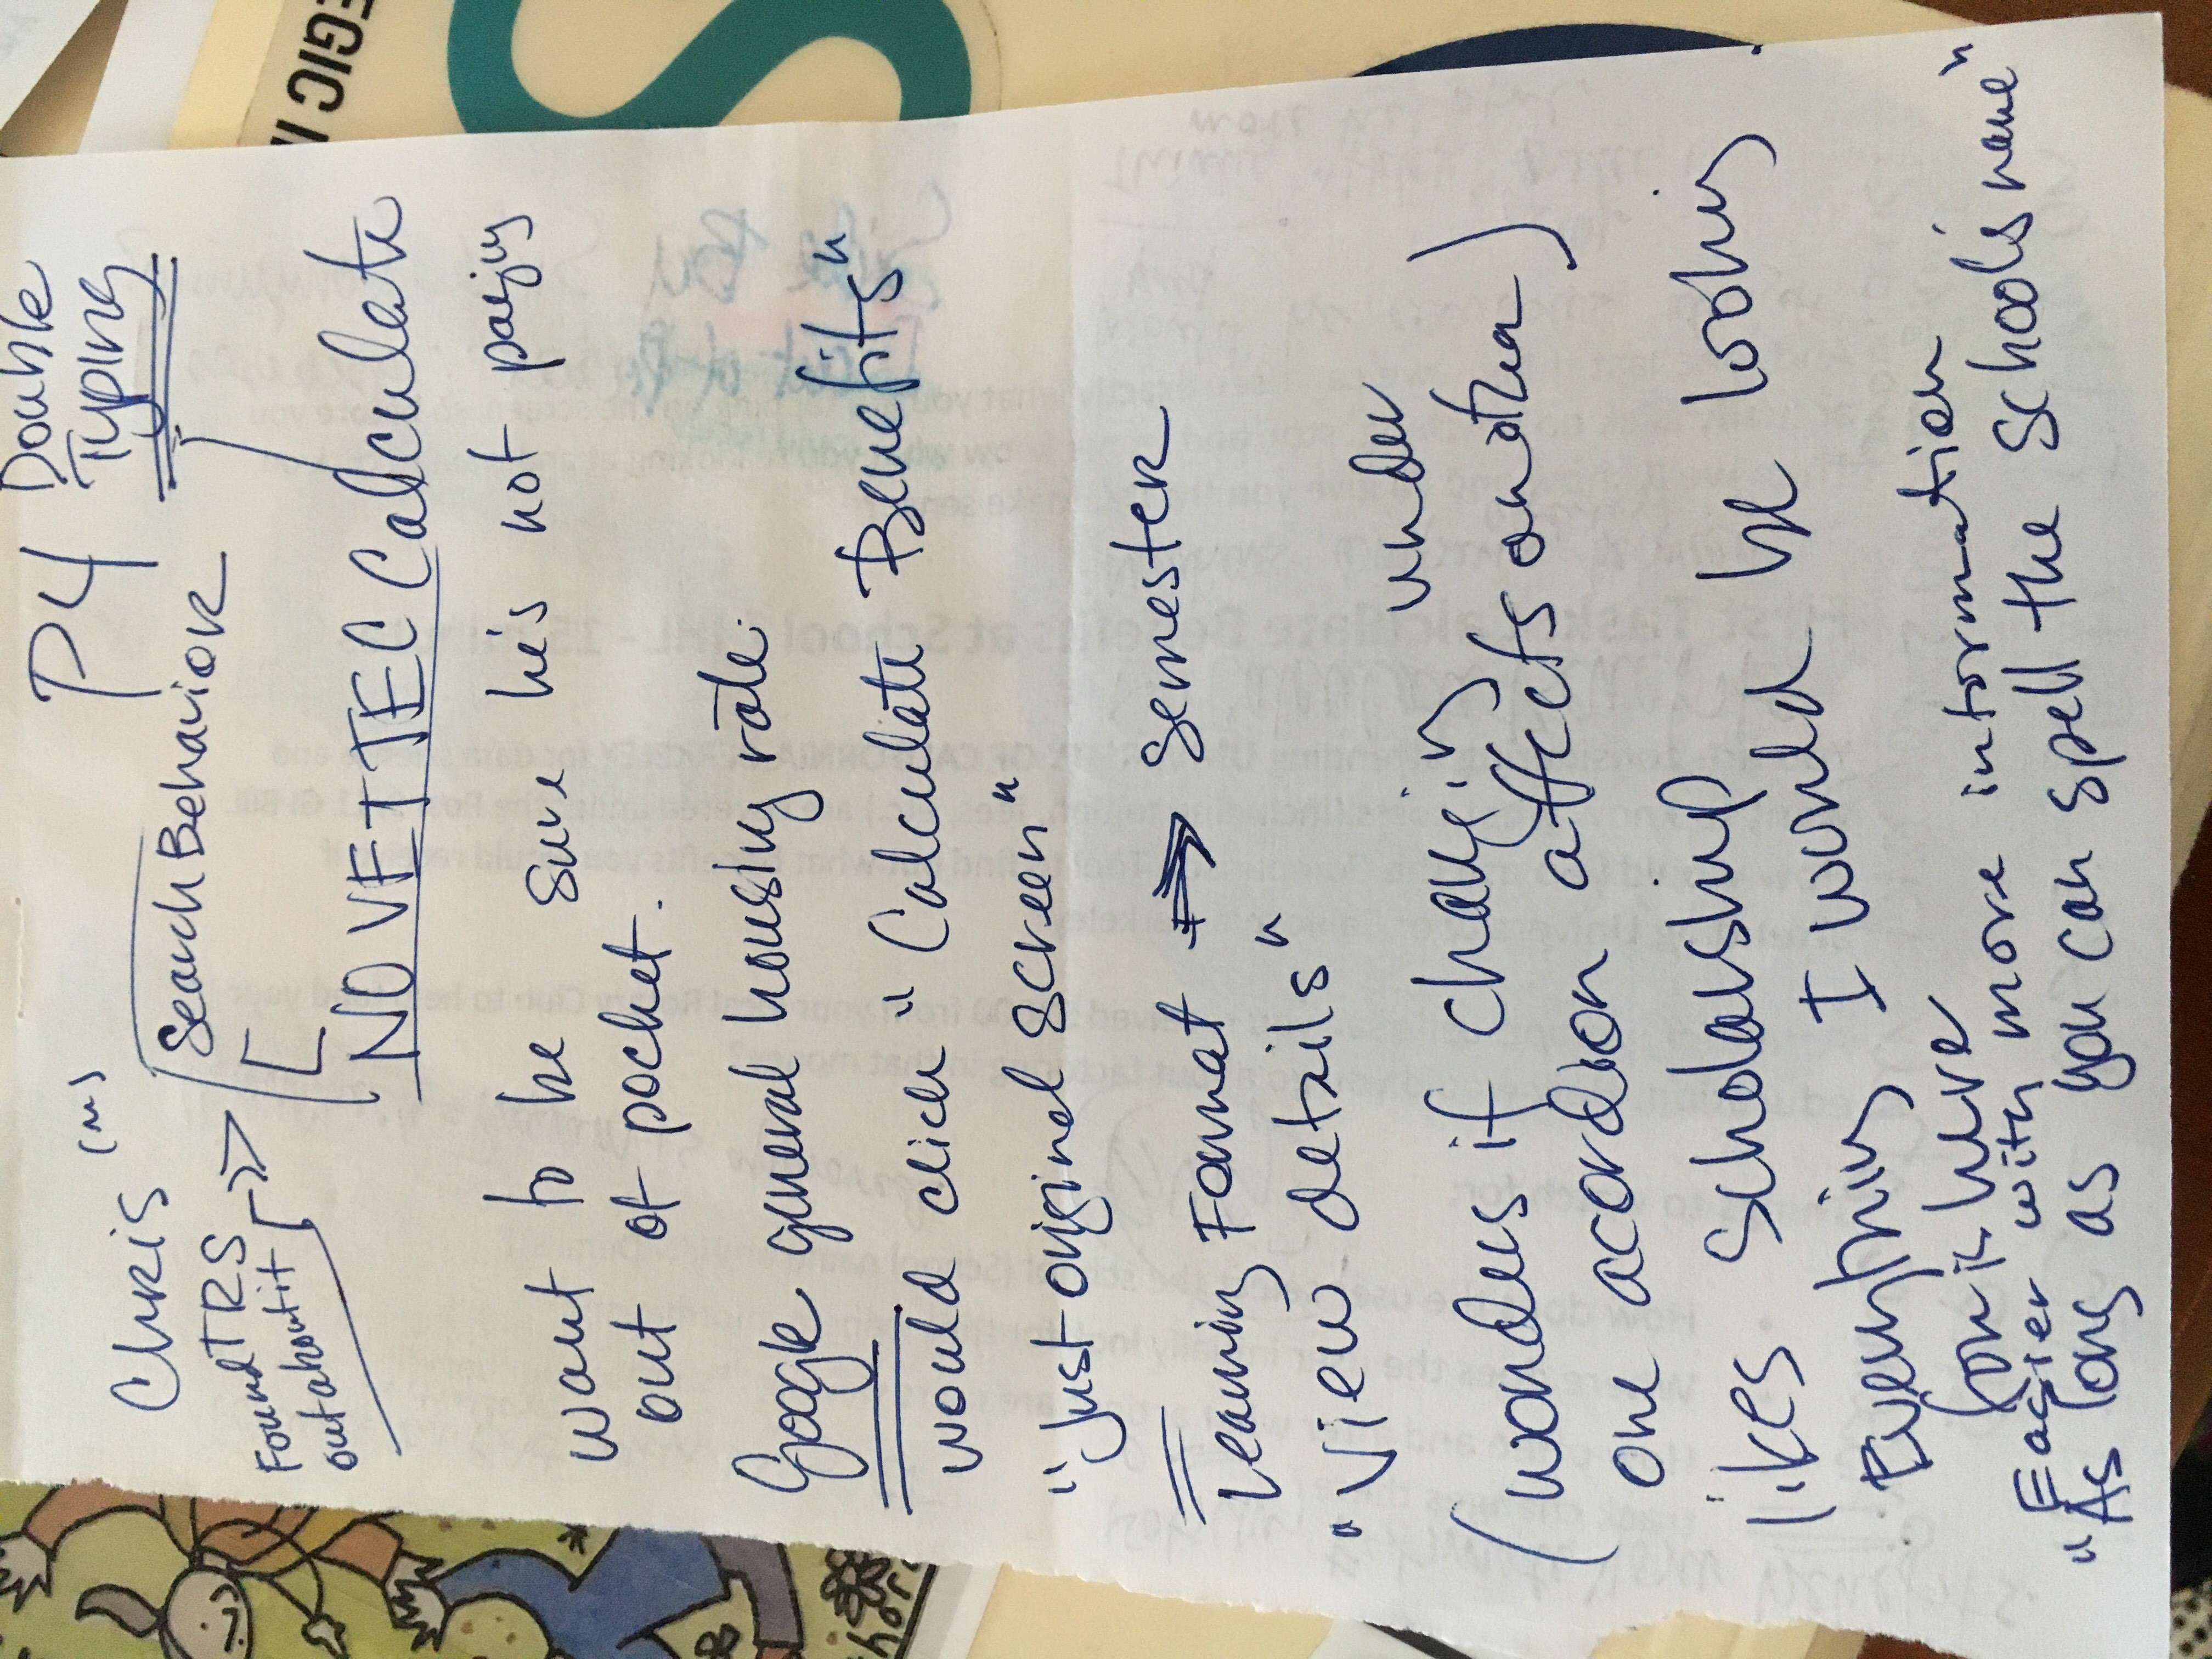 P4 Double
Typing
Chris (m)
Search Behavior
Found TRS
out about it
NO VET TEC Calculate
want to be sure he's not paying
out of pocket.
Google general housing rate.
would click "Calculate Benefits"
"Just original screen"
Learning Format ⇒ Semester
"View details"
(wonders if changing under
one acordion affects another)
likes Scholarship
Everything I would be looking
for is here
Easier with more information
"As long as you can spell the school's name"
EGIC I
S